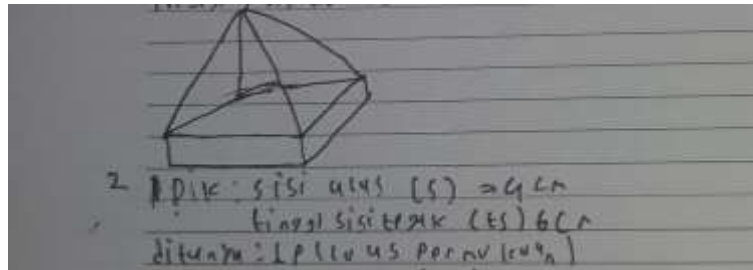 2 Dik : sisi alas (s) = 4 cm
tinggi sisi tegak (ts) 6 cm
ditanya : luas permukaan